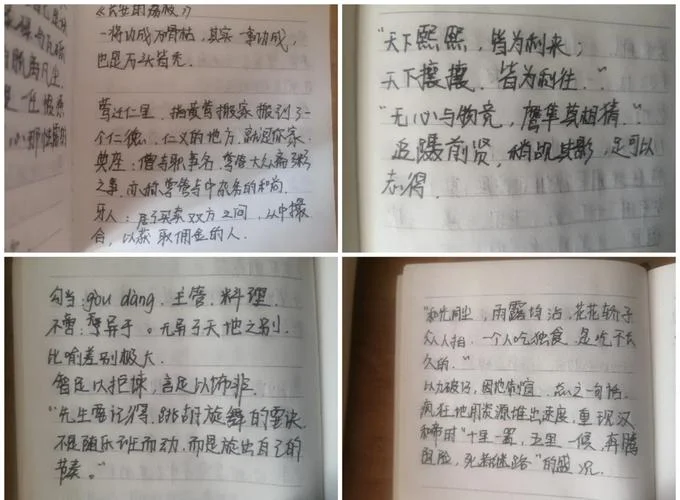 《长安的荔枝》
一将功成万骨枯，其实一事功成，
也是万头皆秃。
莺迁仁里，指黄莺搬家搬到了一
个仁德、仁义的地方，就迎你家.
典座：僧寺职事名，掌管大众斋粥
之事，亦称掌管寺中杂务的和尚.
牙人：居于买卖双方之间，从中撮
合，以获取佣金的人.
"天下熙熙，皆为利来；
天下攘攘，皆为利往."
"无心与物竞，鹰隼莫相猜."
追蹑前贤，稍觇其影，足可以
志得.
勾当：gòu dàng. 主管. 料理.
不啻：无异于。无异于天地之别.
比喻差别极大.
智足以拒谏，言足以饰非.
"先生要记得，跳胡旋舞的要诀，
不是随乐班而动，而是旋出自己的
节奏。"
"和光同尘，雨露均沾，花花轿子
众人抬. 一个人吃独食，是吃不长
久的."
以力破巧，因地制宜. 总之一句话，
疯狂地用资源堆出速度，重现汉
和帝时"十里一置，五里一候，奔腾
阻险，死者继路"的盛况.